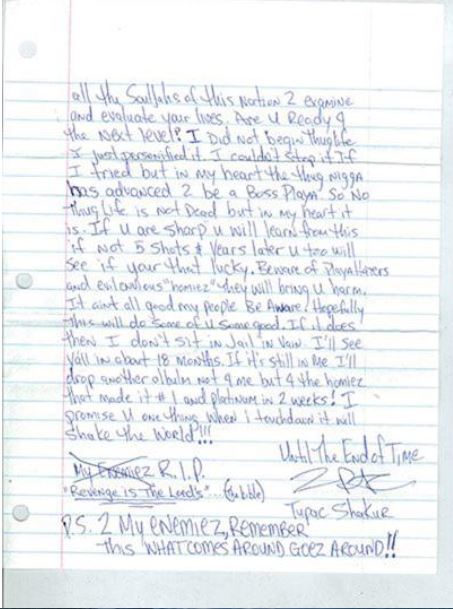 all the Souljahs of this Nation 2 examine
and evaluate your lives. Are U Ready 4
the next level? I Did not begin thuglife
I just personified it. I couldn't stop it If
I tried but in my heart the thug nigga
has advanced 2 be a Boss Playa. So No
Thug Life is not Dead but in my heart it
is. If U are sharp U will learn from this
if not 5 shots & Years later U too will
see if your that lucky. Beware of Playa Haters
and evil envious "homiez" they will bring U harm.
It aint all good my people Be Aware. Hopefully
this will do some of U some good. If it does
then I don't sit in Jail in Vain. I'll see
Yall in about 18 months. If it's still in me I'll
drop another album not 4 me but 4 the homiez
that made it #1 and platinum in 2 weeks! I
promise U one thing when I touchdown it will
Shake the World!!!
Until The End of Time
My Enemiez R.I.P.
"Revenge is The Lord's"... (the bible)
2PAC
Tupac Shakur
P.S. 2 My ENEMIEZ, REMEMBER
this WHAT COMES AROUND GOEZ AROUND!!